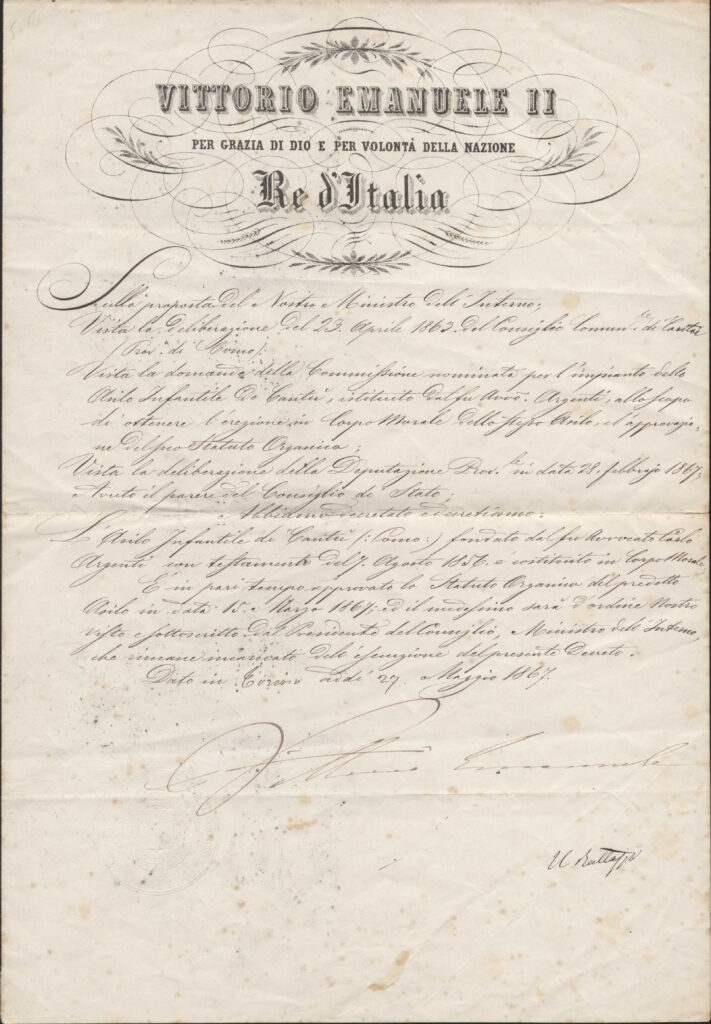 VITTORIO EMANUELE II
PER GRAZIA DI DIO E PER VOLONTÀ DELLA NAZIONE
Re d'Italia
Sulla proposta del Nostro Ministro dell'Interno;
Vista la deliberazione del 23. Aprile 1863. del Consiglio Comun.le di Cantù
(Prov. di Como);
Vista la domanda della Commissione nominata per l'impianto dello
Asilo Infantile di Cantù, istituito dal fu Avv.o Argenti, allo scopo
di ottenere l'erezione in Corpo Morale dello stesso Asilo, e l'approvazio-
ne del suo Statuto Organico;
Vista la deliberazione della Deputazione Prov.le in data 28. febbrajo 1867;
Avuto il parere del Consiglio di Stato;
Abbiamo decretato e decretiamo:
L'Asilo Infantile di Cantù (:Como:) fondato dal fu Avvocato Carlo
Argenti con testamento del 7. Agosto 1856. è costituito in Corpo Morale.
È in pari tempo approvato lo Statuto Organico del predetto
Asilo in data 15. Marzo 1867; ed il medesimo sarà d'ordine Nostro
visto e sottoscritto dal Presidente del Consiglio, Ministro dell'Interno,
che rimane incaricato dell'esecuzione del presente Decreto.
Dato in Torino addì 27. Maggio 1867.
Vittorio Emanuele
U Rattazzi